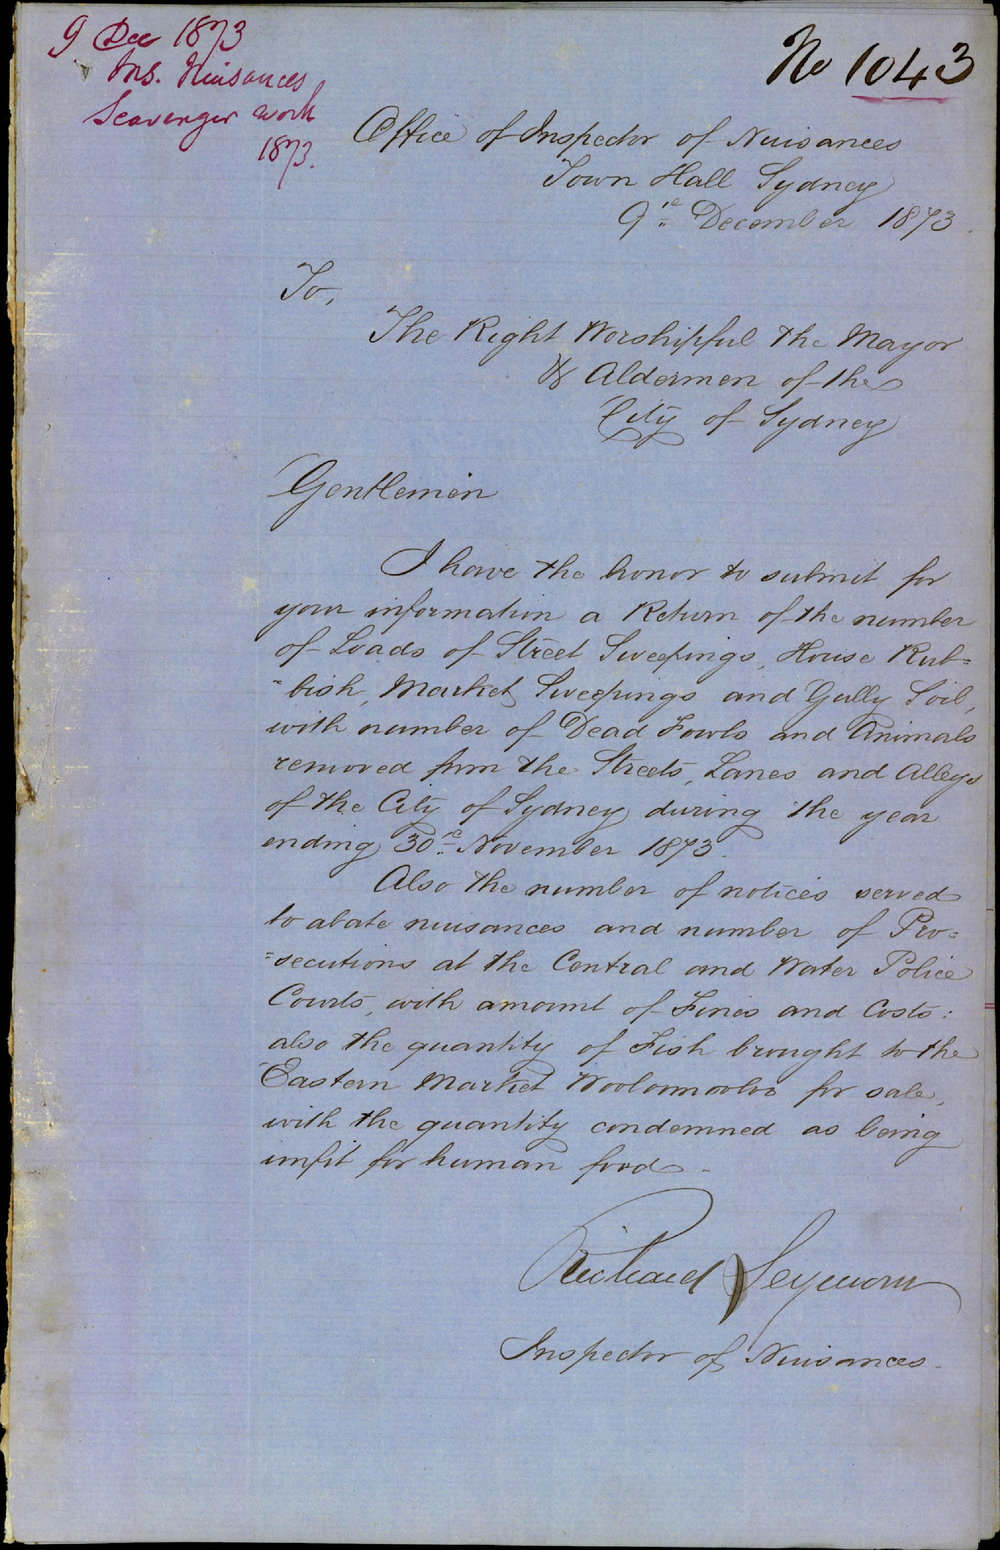 9 Dec 1873
Ins. Nuisances
Scavenger work
1873.
No 1043
Office of Inspector of Nuisances
Town Hall Sydney
9th December 1873.
To,
The Right Worshipful the Mayor
& Aldermen of the
City of Sydney
Gentlemen
I have the honor to submit for
your information a Return of the number
of Loads of Street Sweepings, House Rub=
=bish, Market Sweepings and Gully Soil,
with number of Dead Fowls and Animals
removed from the Streets, Lanes and Alleys
of the City of Sydney during the year
ending 30th November 1873.
Also the number of notices served
to abate nuisances and number of Pro=
=secutions at the Central and Water Police
Courts, with amount of Fines and Costs:
also the quantity of Fish brought to the
Eastern Market Woolloomooloo for sale,
with the quantity condemned as being
unfit for human food.
Richard Seymour
Inspector of Nuisances.